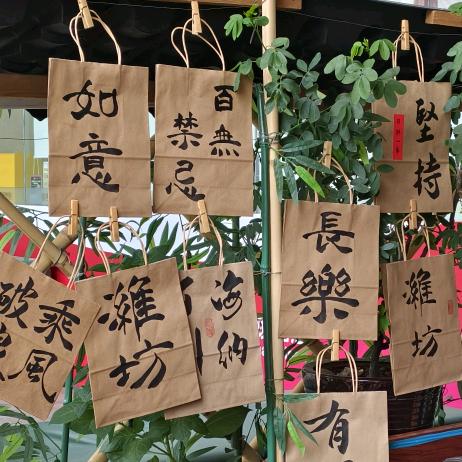 如意
百無
禁忌
堅持
長樂
乘風
破浪
濰坊
海納
濰坊
有